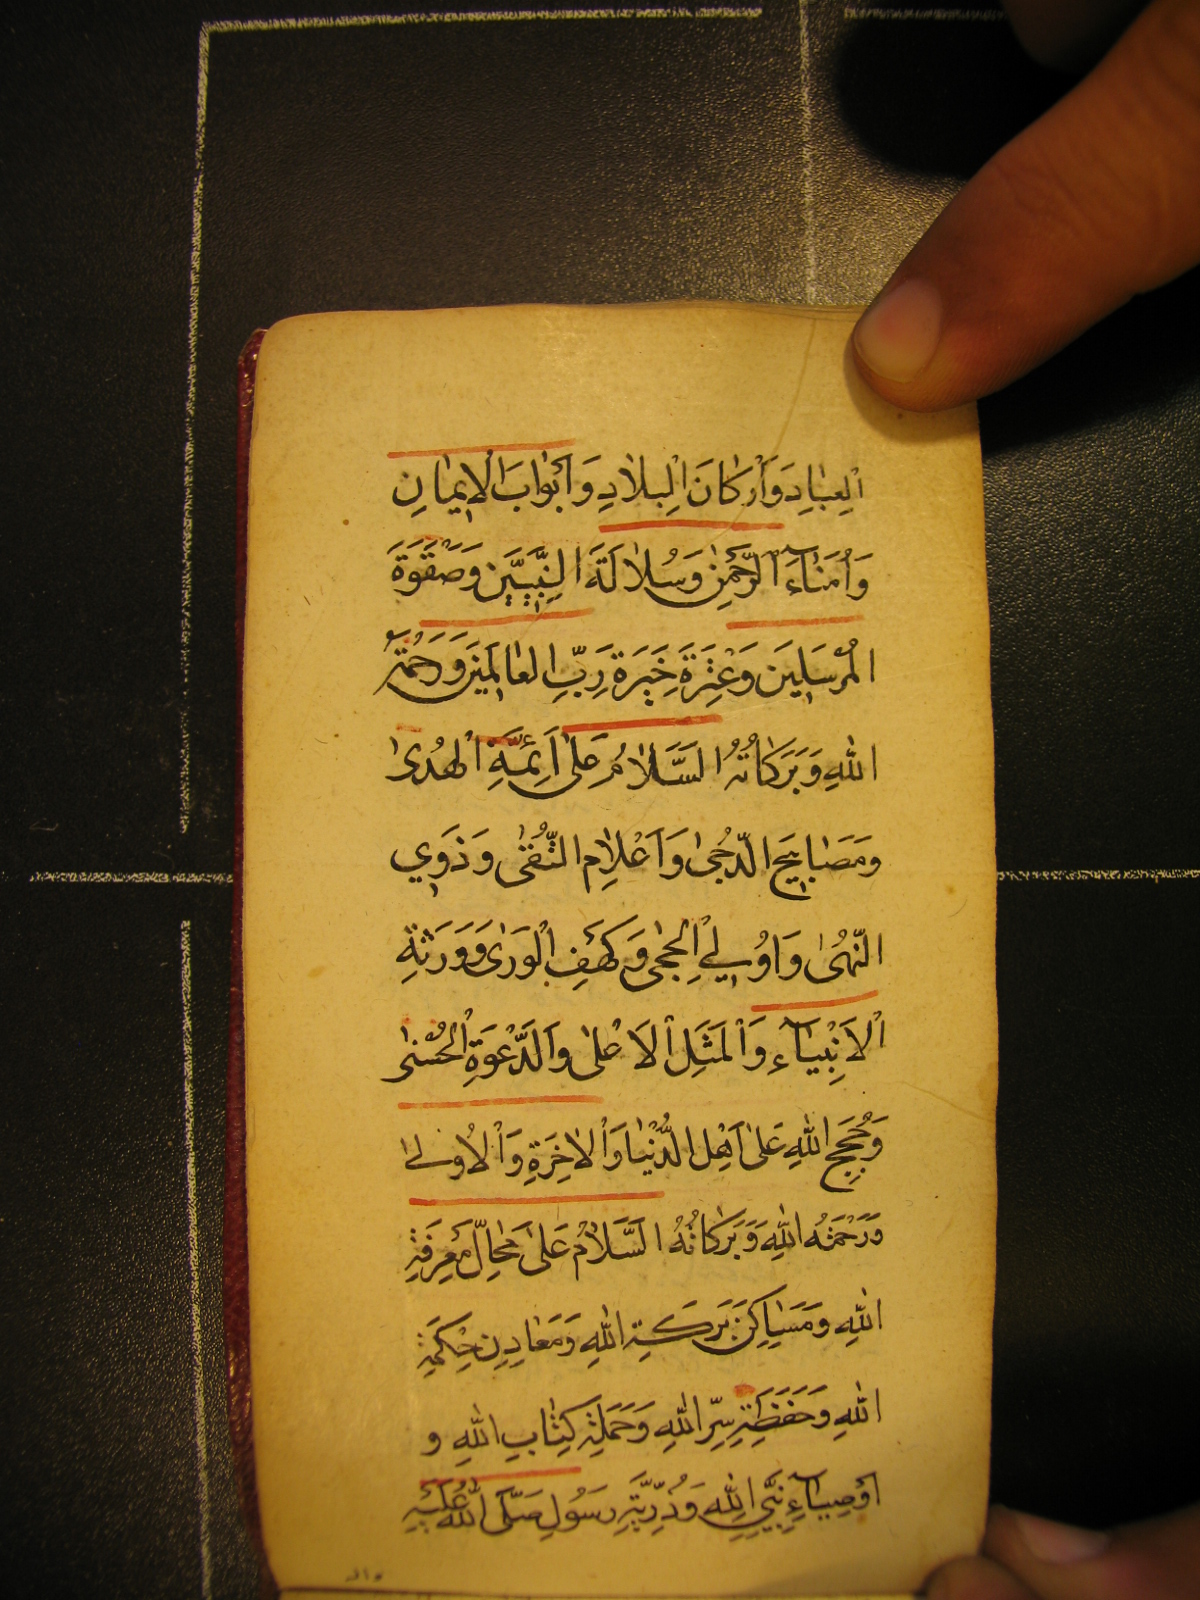 الْعِبَادِ وَاَرْكَانَ الْبِلَادِ وَاَبْوَابَ الْاِيمَانِ
وَاُمَنَاۤءَ الرَّحْمٰنِ وَسُلَالَةَ النَّبِيِّينَ وَصَفْوَةَ
الْمُرْسَلِينَ وَعِتْرَةَ خِيَرَةِ رَبِّ الْعَالَمِينَ وَرَحْمَةُ
اللّٰهِ وَبَرَكَاتُهُ السَّلَامُ عَلٰى اَئِمَّةِ الْهُدٰى
وَمَصَابِيحِ الدُّجٰى وَاَعْلَامِ التُّقٰى وَذَوِي
النُّهٰى وَاُولِي الْحِجٰى وَكَهْفِ الْوَرٰى وَوَرَثَةِ
الْاَنْبِيَاۤءِ وَالْمَثَلِ الْاَعْلٰى وَالدَّعْوَةِ الْحُسْنٰى
وَحُجَجِ اللّٰهِ عَلٰى اَهْلِ الدُّنْيَا وَالْاٰخِرَةِ وَالْاُولٰى
وَرَحْمَتُ اللّٰهِ وَبَرَكَاتُهُ السَّلَامُ عَلٰى مَحَالِّ مَعْرِفَةِ
اللّٰهِ وَمَسَاكِنِ بَرَكَةِ اللّٰهِ وَمَعَادِنِ حِكْمَةِ
اللّٰهِ وَحَفَظَةِ سِرِّ اللّٰهِ وَحَمَلَةِ كِتَابِ اللّٰهِ وَ
اَوْصِيَاۤءِ نَبِيِّ اللّٰهِ وَذُرِّيَّةِ رَسُولِ صَلَّى اللّٰهُ عَلَيْهِ
وآله